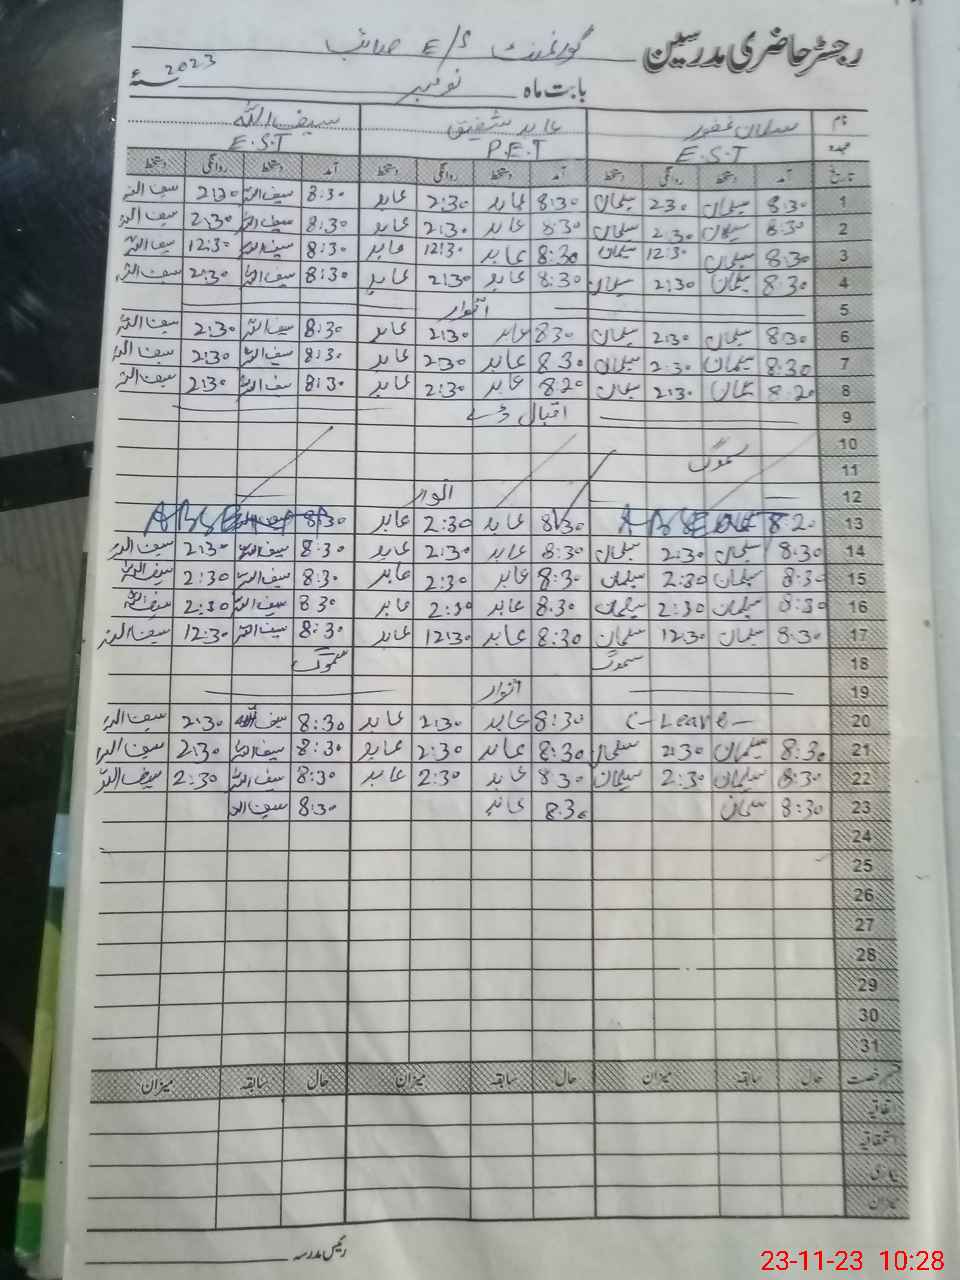 رجسٹر حاضری مدرسین گورنمنٹ E/S
بابت ماہ نومبر 2023ء
نام سلمان غفور عابد شفیق سیف اللہ
عہدہ E.S.T P.E.T E.S.T
تاریخ آمد دستخط روانگی دستخط آمد دستخط روانگی دستخط آمد دستخط روانگی دستخط
1 8:30 سلمان 2:30 سلمان 8:30 عابد 2:30 عابد 8:30 سیف اللہ 2:30 سیف اللہ
2 8:30 سلمان 2:30 سلمان 8:30 عابد 2:30 عابد 8:30 سیف اللہ 2:30 سیف اللہ
3 8:30 سلمان 12:30 سلمان 8:30 عابد 12:30 عابد 8:30 سیف اللہ 12:30 سیف اللہ
4 8:30 سلمان 2:30 سلمان 8:30 عابد 2:30 عابد 8:30 سیف اللہ 2:30 سیف اللہ
5 اتوار
6 8:30 سلمان 2:30 سلمان 8:30 عابد 2:30 عابد 8:30 سیف اللہ 2:30 سیف اللہ
7 8:30 سلمان 2:30 سلمان 8:30 عابد 2:30 عابد 8:30 سیف اللہ 2:30 سیف اللہ
8 8:20 سلمان 2:30 سلمان 8:20 عابد 2:30 عابد 8:30 سیف اللہ 2:30 سیف اللہ
9 اقبال ڈے
10
11 سموگ
12 اتوار
13 8:20 ABSENT 8:30 عابد 2:30 عابد 8:30 ABSENT
14 8:30 سلمان 2:30 سلمان 8:30 عابد 2:30 عابد 8:30 سیف اللہ 2:30 سیف اللہ
15 8:30 سلمان 2:30 سلمان 8:30 عابد 2:30 عابد 8:30 سیف اللہ 2:30 سیف اللہ
16 8:30 سلمان 2:30 سلمان 8:30 عابد 2:30 عابد 8:30 سیف اللہ 2:30 سیف اللہ
17 8:30 سلمان 12:30 سلمان 8:30 عابد 12:30 عابد 8:30 سیف اللہ 12:30 سیف اللہ
18 سموگ سموگ
19 اتوار
20 C-Leave- 8:30 عابد 2:30 عابد 8:30 سیف اللہ 2:30 سیف اللہ
21 8:30 سلمان 2:30 سلمان 8:30 عابد 2:30 عابد 8:30 سیف اللہ 2:30 سیف اللہ
22 8:30 سلمان 2:30 سلمان 8:30 عابد 2:30 عابد 8:30 سیف اللہ 2:30 سیف اللہ
23 8:30 سلمان 8:30 عابد 8:30 سیف اللہ
24
25
26
27
28
29
30
31
قسم رخصت حال سابقہ میزان حال سابقہ میزان حال سابقہ میزان
اتفاقیہ
استحقاقیہ
بیماری
میزان
رئیس مدرسہ
23-11-23 10:28